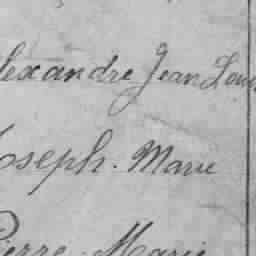 lexandre Jean Lou
Joseph. Marie
Pierre Marie